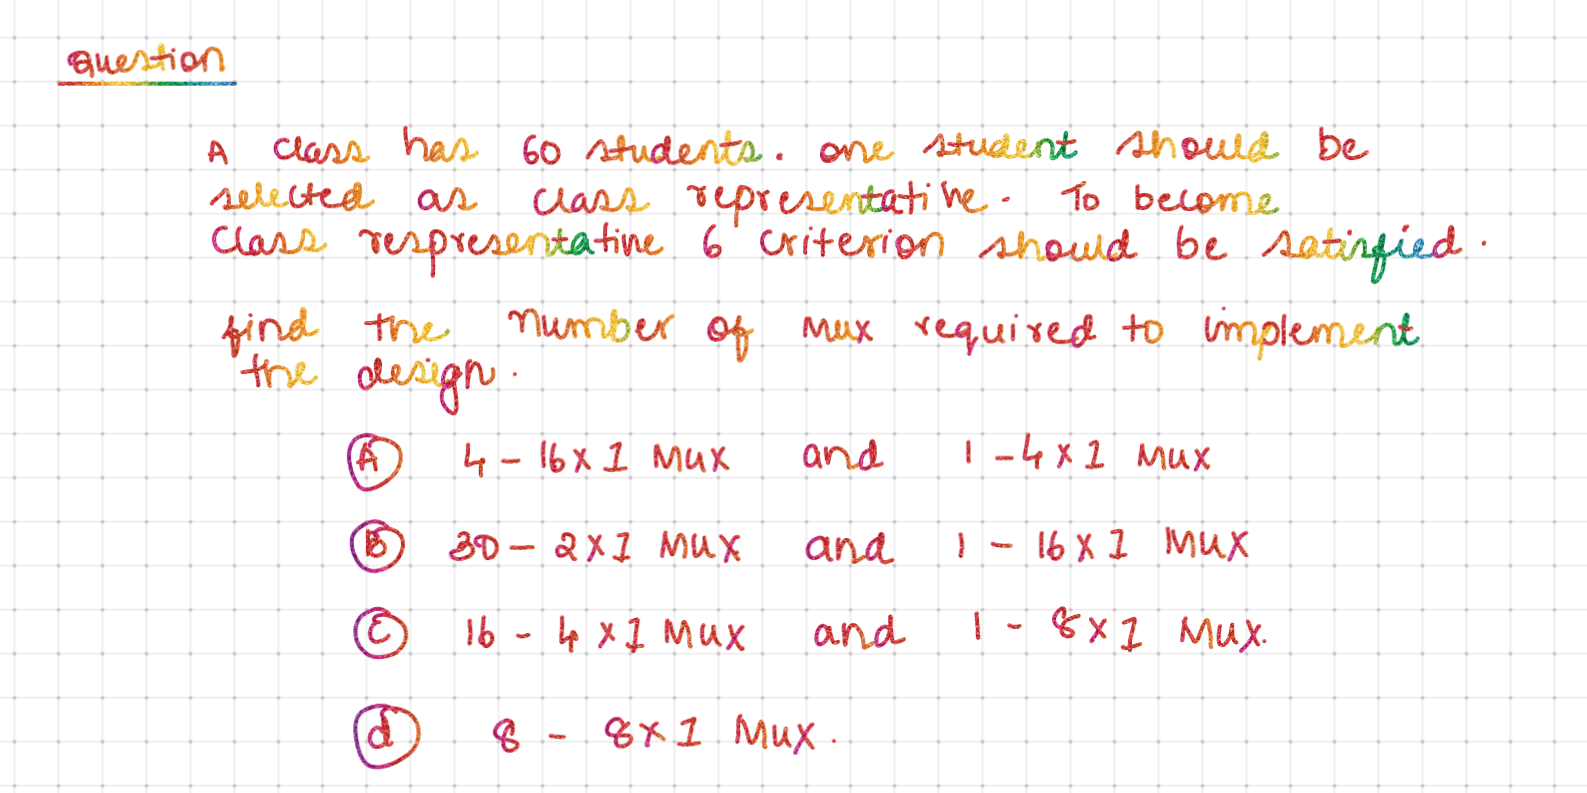 Question
A class has 60 students. one student should be
selected as class representative. To become
class respresentative 6 criterion should be satisfied.
find the number of mux required to implement
the design.
A 4 - 16 x 1 Mux and 1 - 4 x 1 Mux
B 30 - 2 x 1 Mux and 1 - 16 x 1 Mux
C 16 - 4 x 1 Mux and 1 - 8 x 1 Mux.
d 8 - 8 x 1 Mux.